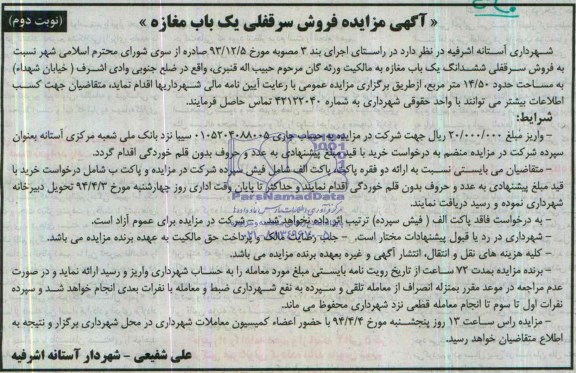 (نوبت دوم)
« آگهی مزایده فروش سرقفلی یک باب مغازه »
شهرداری آستانه اشرفیه در نظر دارد در راستای اجرای بند ۳ مصوبه مورخ ۹۳/۱۲/۵ صادره از سوی شورای محترم اسلامی شهر نسبت
به فروش سرقفلی ششدانگ یک باب مغازه به مالکیت ورثه گان مرحوم حبیب اله قنبری، واقع در ضلع جنوبی وادی اشرف ( خیابان شهداء)
به مساحت حدود ۱۴/۵۰ متر مربع، ازطریق برگزاری مزایده عمومی با رعایت آیین نامه مالی شهرداریها اقدام نماید، متقاضیان جهت کسب
اطلاعات بیشتر می توانند با واحد حقوقی شهرداری به شماره ۴۲۱۲۲۰۴۰ تماس حاصل فرمایند.
شرایط:
– واریز مبلغ ۲۰/۰۰۰/۰۰۰ ریال جهت شرکت در مزایده به حساب جاری ۰۱۰۵۲۰۴۰۸۸۰۰۵ سیبا نزد بانک ملی شعبه مرکزی آستانه بعنوان
سپرده شرکت در مزایده منضم به درخواست خرید با قید مبلغ پیشنهادی به عدد و حروف بدون قلم خوردگی اقدام گردد.
– متقاضیان می بایستی نسبت به ارائه دو فقره پاکت، پاکت الف شامل فیش سپرده شرکت در مزایده و پاکت ب شامل درخواست خرید با
قید مبلغ پیشنهادی به عدد و حروف بدون قلم خوردگی اقدام نمایند و حداکثر تا پایان وقت اداری روز چهارشنبه مورخ ۹۴/۴/۳ تحویل دبیرخانه
شهرداری نموده و رسید دریافت نمایند.
– به درخواست فاقد پاکت الف ( فیش سپرده) ترتیب اثر داده نخواهد شد. – شرکت در مزایده برای عموم آزاد است.
– شهرداری در رد یا قبول پیشنهادات مختار است. – جلب رضایت مالک و پرداخت حق مالکیت به عهده برنده مزایده می باشد.
– کلیه هزینه های نقل و انتقال، انتشار آگهی و غیره بعهده برنده مزایده می باشد.
– برنده مزایده بمدت ۷۲ ساعت از تاریخ رویت نامه بایستی مبلغ مورد معامله را به حساب شهرداری واریز و رسید ارائه نماید و در صورت
عدم مراجعه در موعد مقرر بمنزله انصراف از معامله تلقی و سپرده به نفع شهرداری ضبط و معامله با نفرات بعدی انجام خواهد شد و سپرده
نفرات اول تا سوم تا انجام معامله قطعی نزد شهرداری محفوظ می ماند.
– مزایده راس ساعت ۱۳ روز پنجشنبه مورخ ۹۴/۴/۴ با حضور اعضاء کمیسیون معاملات شهرداری در محل شهرداری برگزار و نتیجه به
اطلاع متقاضیان خواهد رسید.
علی شفیعی – شهردار آستانه اشرفیه
ParsNamadData